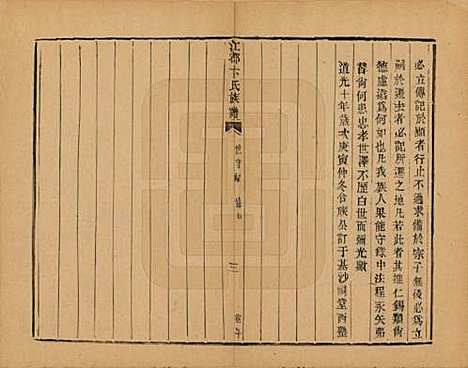 必立傳記於顯者行止不過求備於宗子無後必為立
嗣於遷去者必記所遷之地凡若此者其推仁錫類尚
德慮遠為何如也凡我族人果能守錄中法程永矢弗
替尚何患忠孝世澤不歷百世而彌光歟
道光十年歲次庚寅仲冬合族公訂于基沙祠堂西塾
江都卞氏族譜
三